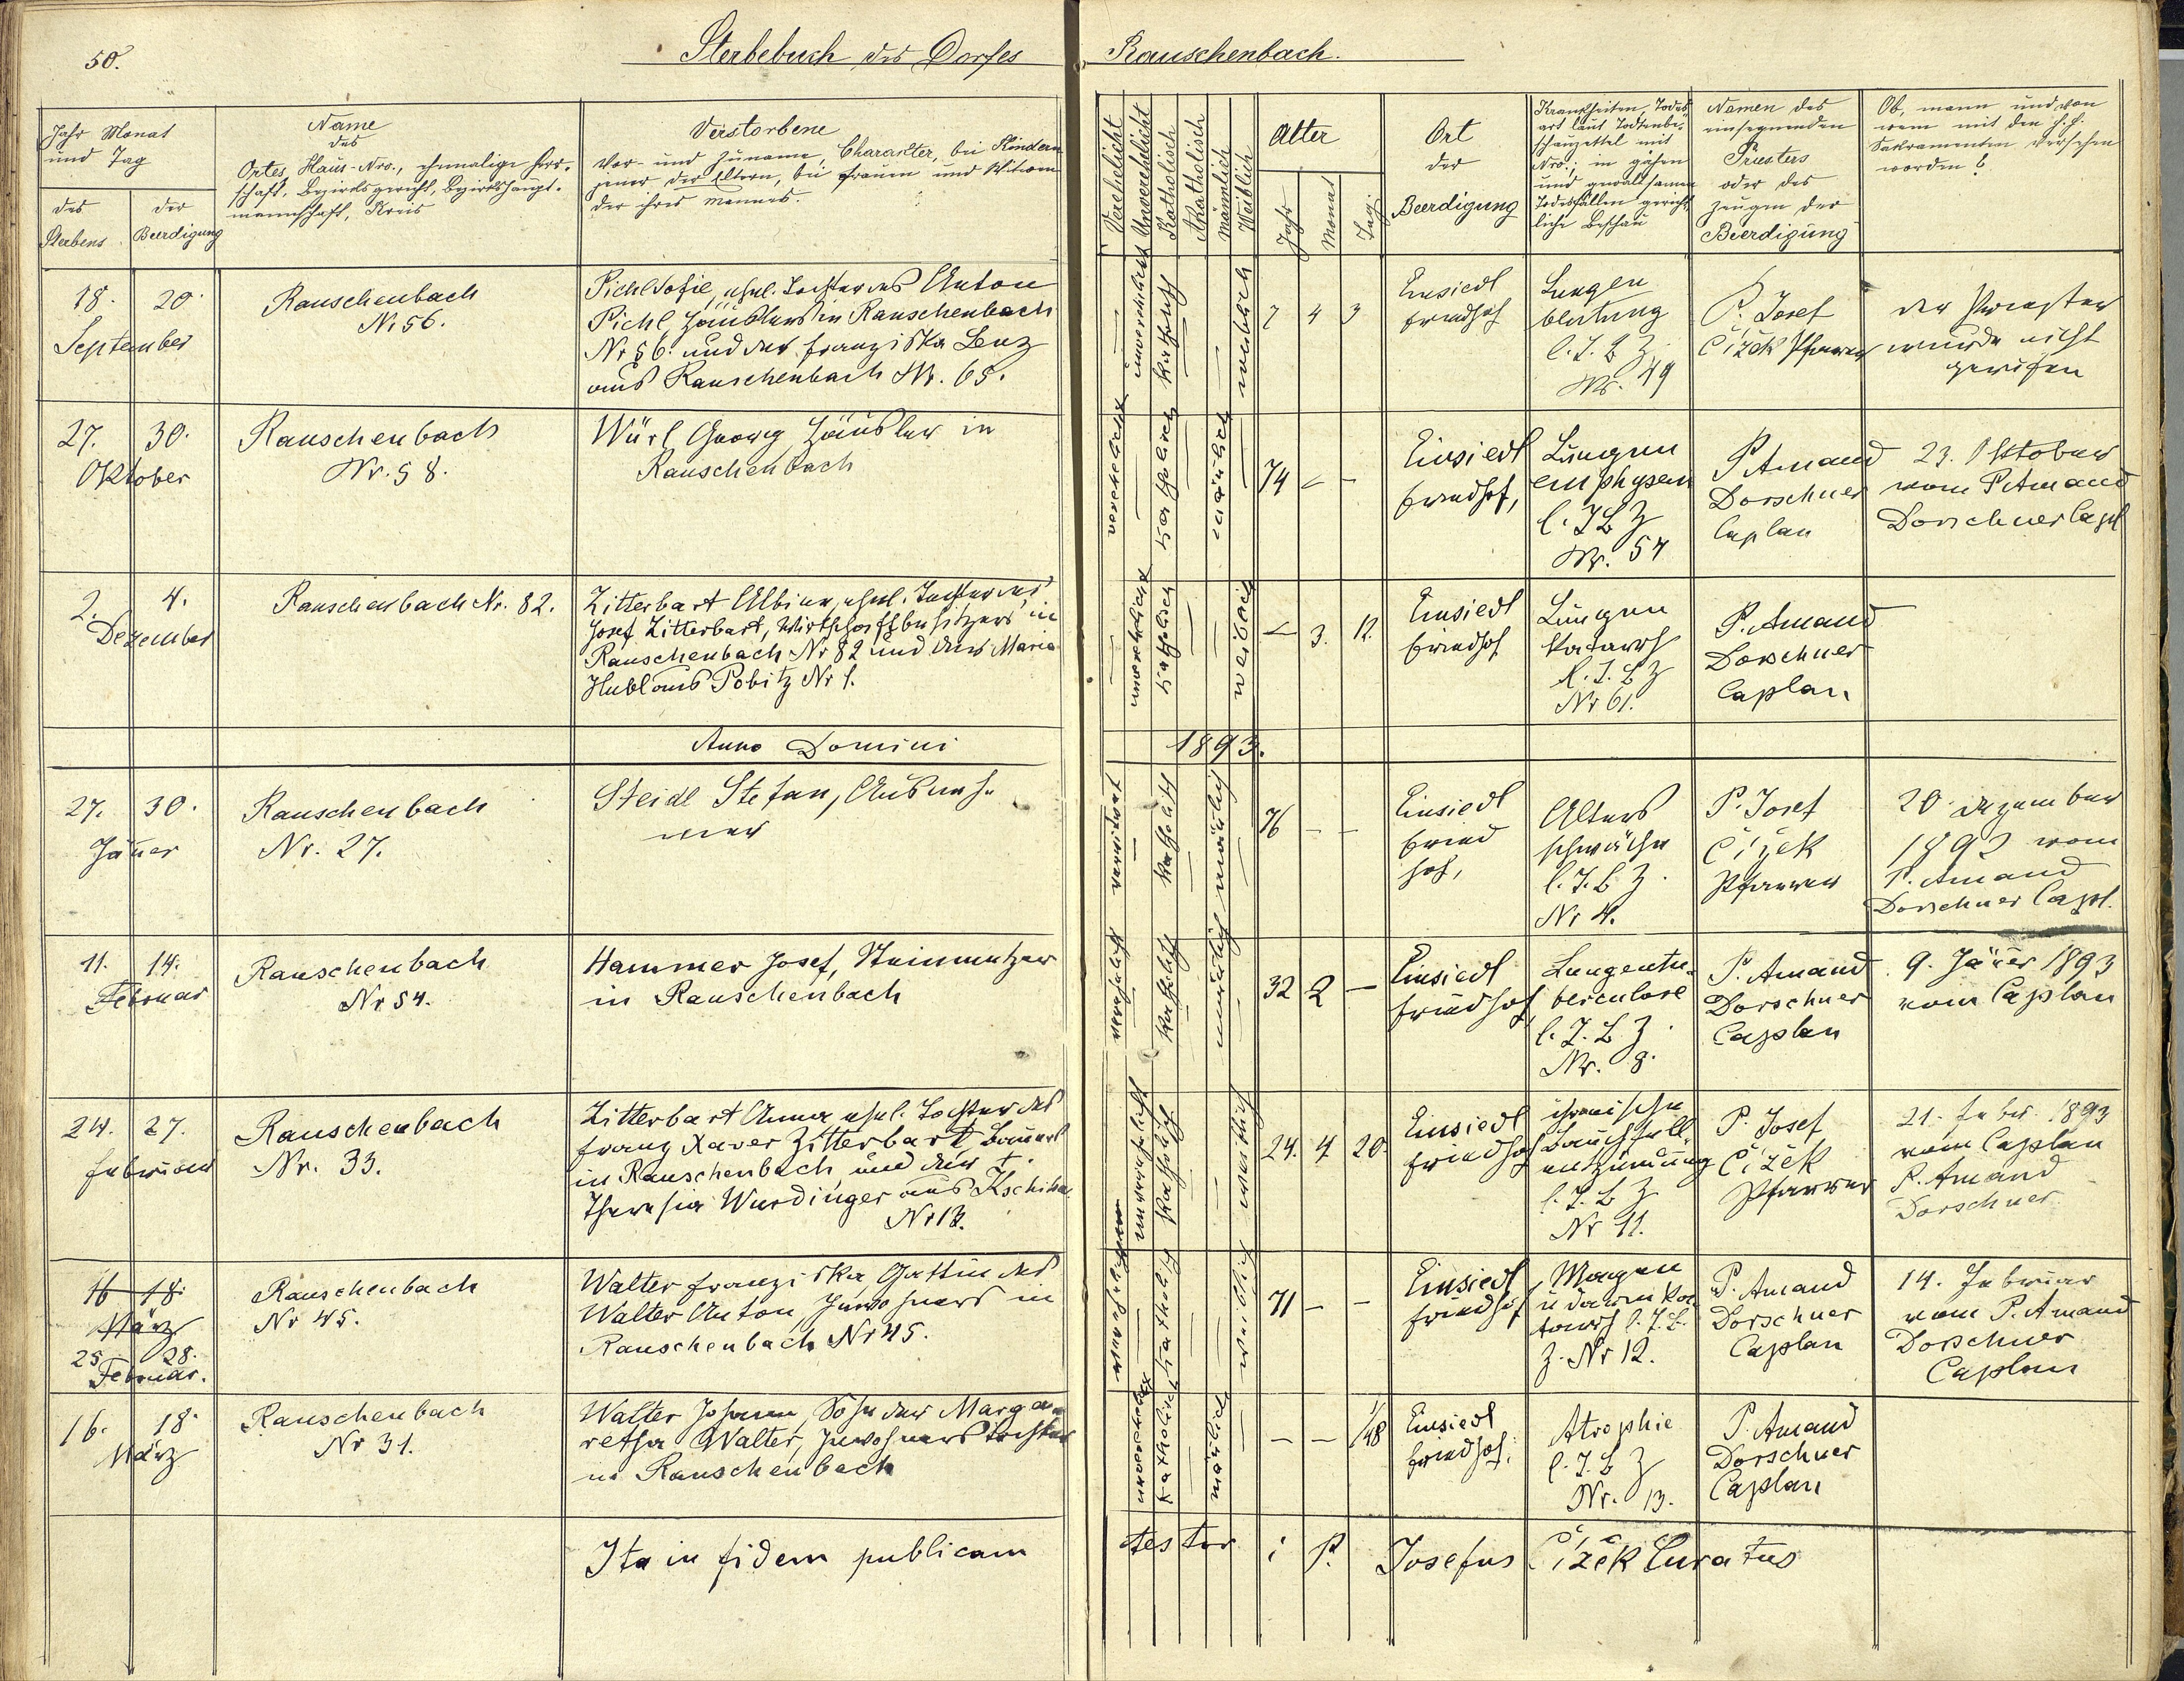 50.
Sterbebuch des Dorfes Rauschenbach.
Jahr Monat
und Tag
des
Sterbens
der
Beerdigung
Name
des
Ortes, Haus-Nro., ehemalige Herr-
schaft, Bezirksgericht, Bezirkshaupt-
mannschaft, Kreis
Verstorbene
Vor- und Zuname, Charakter, bei Kindern
jener der Eltern, bei Frauen und Witwen
der ihres Mannes.
Verehelicht
Unverehelicht
Katholisch
Akatholisch
Männlich
Weiblich
Alter
Jahr
Monat
Tag
Ort
der
Beerdigung
Krankheiten, Todes-
art laut Todtenbe-
schauzettel mit
Nro.; in gähen
und gewaltsamen
Todesfällen gericht-
liche Beschau
Namen des
einsegnenden
Priesters
oder des
Zeugen der
Beerdigung
Ob, wann und von
wem mit den h.h.
Sakramenten versehen
worden?
18. 20.
September
Rauschenbach
Nr 56.
Pichl Sofie, ehel. Tochter des Anton
Pichl, Häuslers in Rauschenbach
Nr 56. und der Franziska Lenz
aus Rauschenbach Nr. 65.
—
unverehelicht
katholisch
—
—
weiblich
7 4 3
Einsiedl
Friedhof
Lungen
blutung
l. T. B Z.
Nr. 49
P. Josef
Čížek Pfarrer
der Priester
wurde nicht
gerufen
27. 30.
Oktober
Rauschenbach
Nr. 58.
Würl Georg Häusler in
Rauschenbach
—
katholisch
—
männlich
—
74 – –
Einsiedl
Friedhof,
Lungen
emphysem
l. T B Z
Nr. 54
P. Amand
Dorschner
Caplan
23. Oktober
vom P. Amand
Dorschner Capl
2. 4.
Dezember
Rauschenbach Nr. 82.
Zitterbart Albina, ehel. Tochter des
Josef Zitterbart, Wirthschaftbesitzers in
Rauschenbach Nr 82 und der Maria
Hubl aus Pobitz Nr 1.
—
unverehelicht
katholisch
—
—
weiblich
– 3. 12.
Einsiedl
Friedhof
Lungen
katarrh
l. T. B Z
Nr 61.
P. Amand
Dorschner
Caplan
Anno Domini 1893.
27. 30.
Jäner
Rauschenbach
Nr. 27.
Steidl Stefan, Ausneh-
mer
verwitwet
—
katholisch
—
männlich
—
76 – –
Einsiedl
Fried
hof,
Alters
schwäche
l. T. B Z.
Nr 4.
P. Josef
Čížek
Pfarrer
20. Dezember
1892 vom
P. Amand
Dorschner Capl.
11. 14.
Februar
Rauschenbach
Nr 54.
Hammer Josef, Steinmetzer
in Rauschenbach
verehelicht
—
katholisch
—
männlich
—
32 2 –
Einsiedl
Friedhof,
Lungentu-
berculose
l. T. B Z.
Nr. 8.
P. Amand
Dorschner
Caplan
9. Jäner 1893
vom Caplan
24. 27.
Februar
Rauschenbach
Nr. 33.
Zitterbart Anna ehel. Tochter des
Franz Xaver Zitterbart Bauers
in Rauschenbach und der †.
Theresia Wurdinger aus
Nr 13.
unverehelicht
katholisch
—
—
weiblich
24. 4 20.
Einsiedl
Friedhof
chronische
Bauchfell-
entzündung
l. T. B Z
Nr 11.
P. Josef
Čížek
Pfarrer
21. Feber. 1893
vom Caplan
P. Amand
Dorschner
16 18.
März
25. 28.
Februar.
Rauschenbach
Nr 45.
Walter Franziska Gattin des
Walter Anton Inwohners in
Rauschenbach Nr 45.
—
katholisch
—
—
weiblich
71 – –
Einsiedl
Friedhof
Magen
u Darm ka
tarrh l. T. B.
Z. Nr 12.
P. Amand
Dorschner
Caplan
14. Februar
vom P. Amand
Dorschner
Caplan
16. 18.
März
Rauschenbach
Nr 31.
Walter Johann, Sohn der Marga-
retha Walter, Inwohners Tochter
in Rauschenbach
katholisch
—
männlich
—
– – 1/48
Einsiedl
Friedhof.
Atrophie
l. T. B Z
Nr. 13.
P. Amand
Dorschner
Caplan
Ita in fidem publicam testor i P. Josefus Čížek Curatus